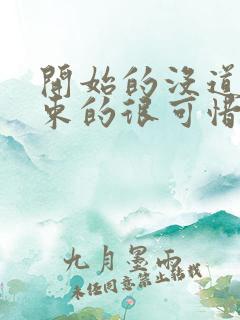 開始的沒道
束的很可惜
九月墨雨
未經同意禁止轉載